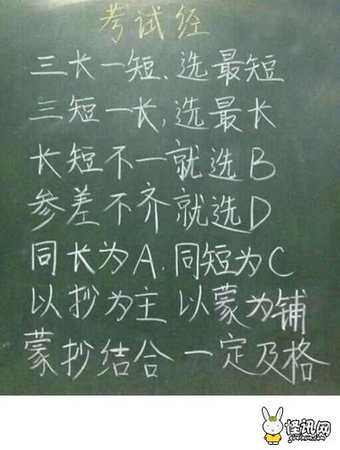 考试经
三长一短、选最短
三短一长,选最长
长短不一就选B
参差不齐就选D
同长为A.同短为C
以抄为主 以蒙为铺
蒙抄结合 一定及格
怪讯网